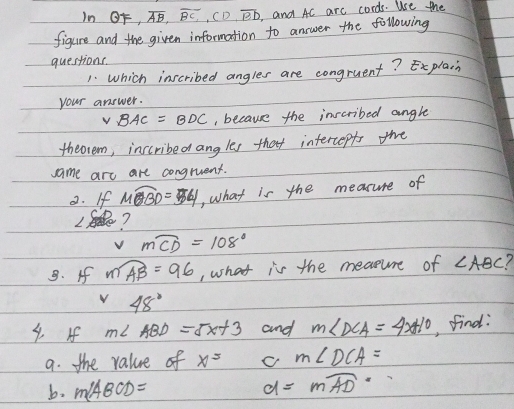 In ⊙F, AB, BC, CD BD, and AC are cords. Use the
figure and the given information to answer the following
questions.
1. Which inscribed angles are congruent? Explain
your answer.
v BAC = BDC, because the inscribed angle
theorem, inscribed angles that intercepts the
same arc are congruent.
2. If = 54, what is the measure of
∠ ?
v mCD = 108°
3. If mAB = 96, what is the measure of ∠ABC?
v 48°
4. If m∠ ABD = 5x+3 and m∠DCA = 4x+10, find:
a. the value of x= c. m∠DCA =
b. m∠ABCD= d = mAD